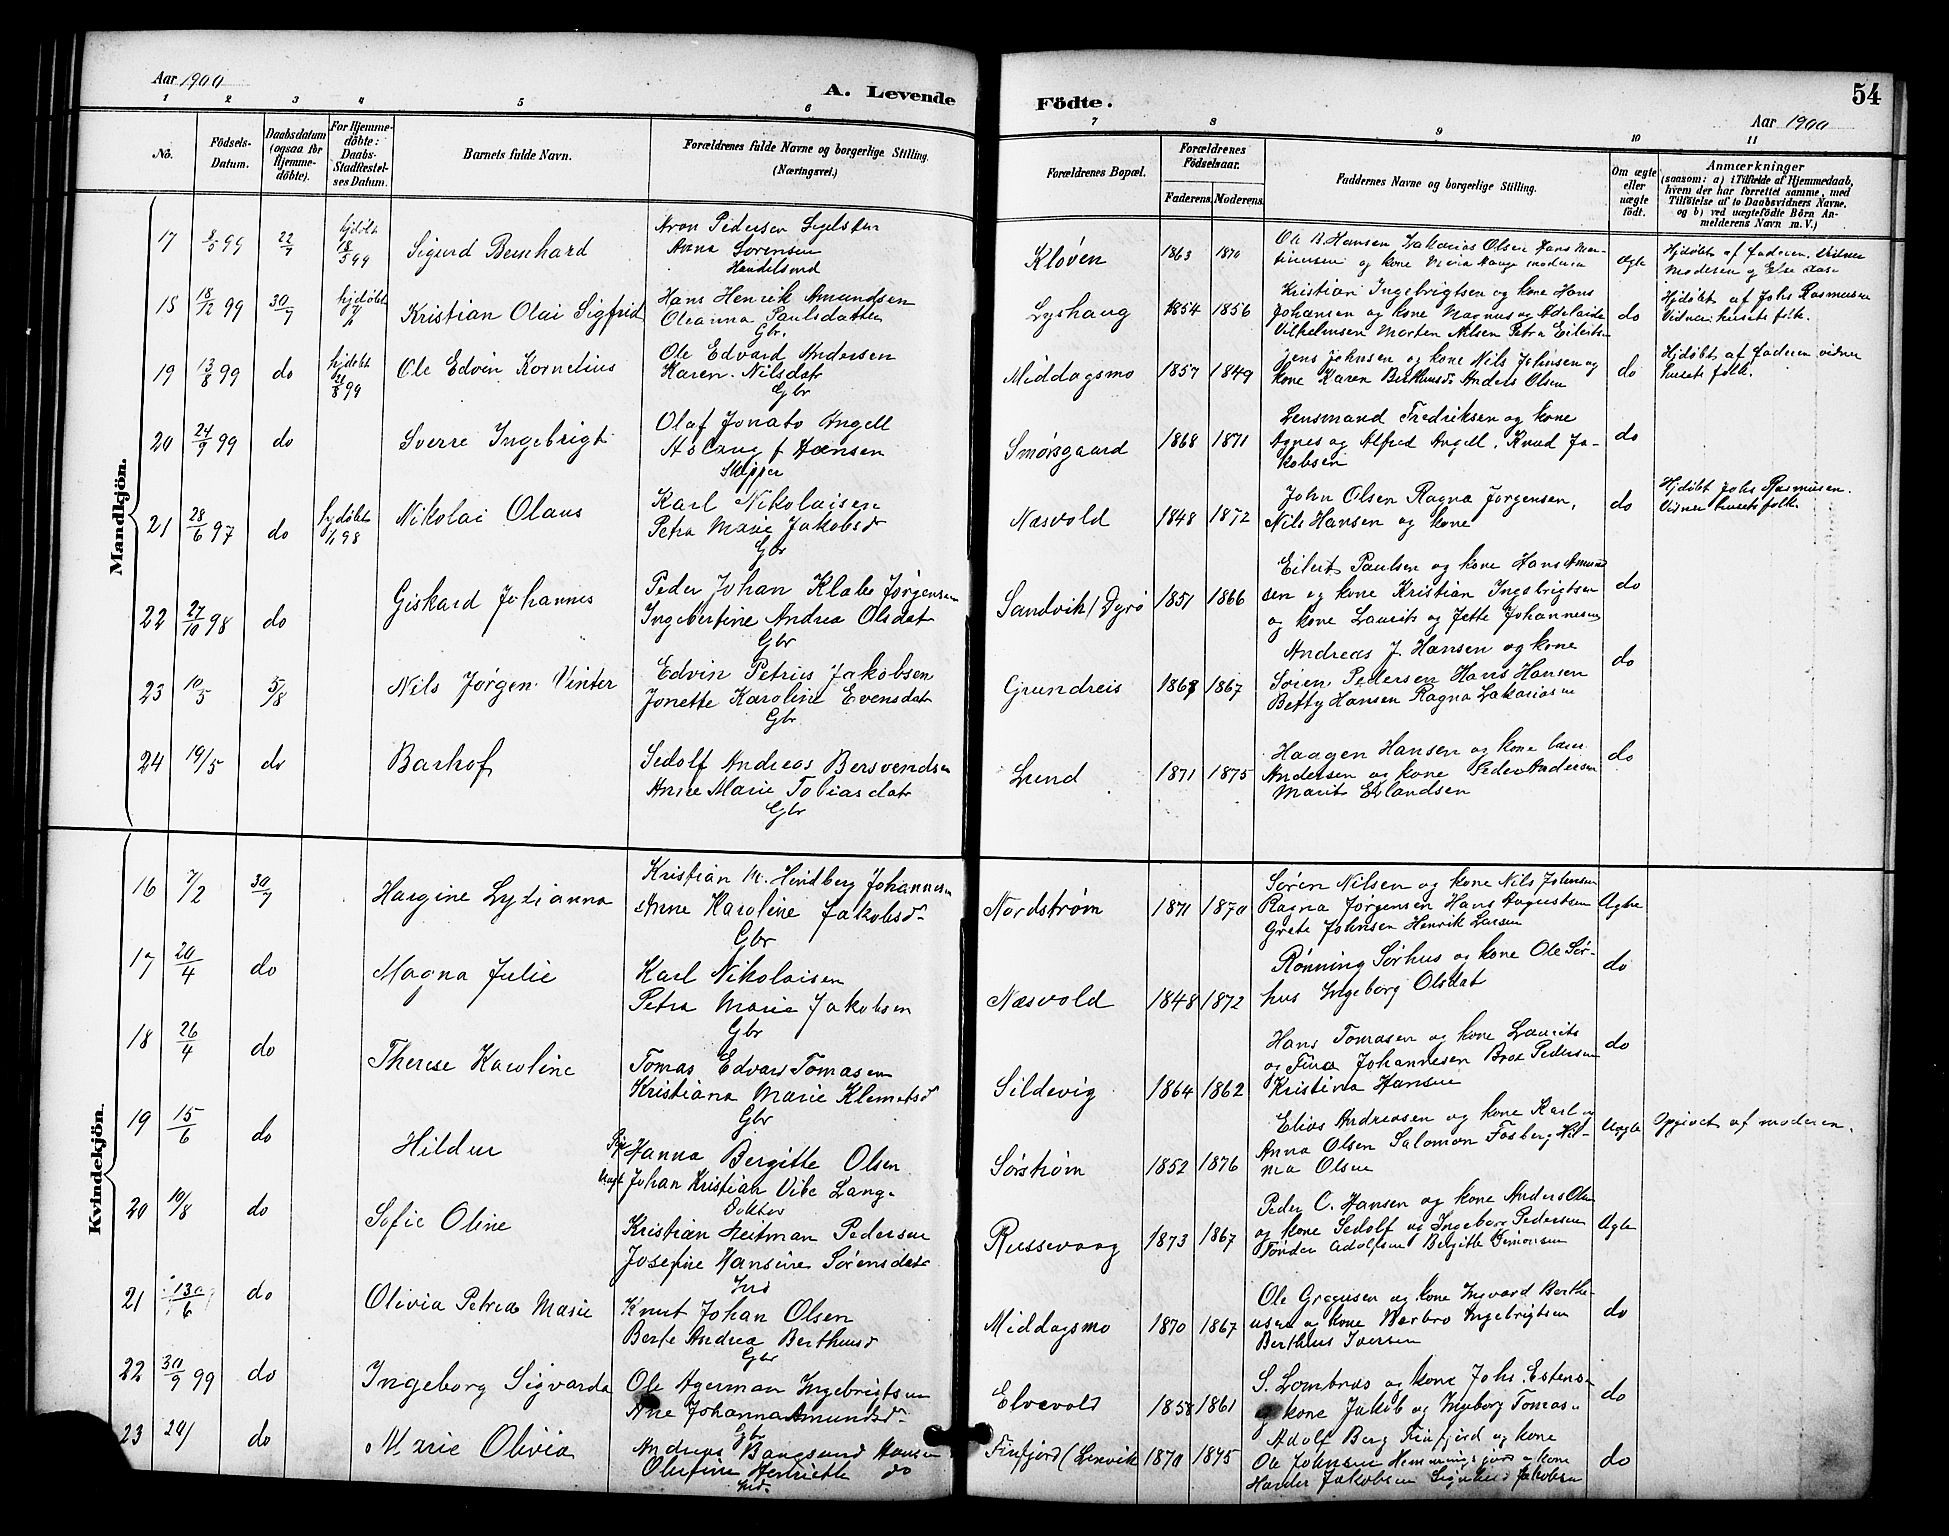 Aar 1900
A. Levende
Födte.
54
Aar 1900
1 2 3 4 5 6 7 8 9 10 11
No.
Födsels-
Datum.
Daabsdatum
(ogsaa for
Hjemme-
döbte).
For Hjemme-
döbte:
Daabs-
Stadfæstel-
ses Datum.
Barnets fulde Navn.
Forældrenes fulde Navne og borgerlige Stilling.
(Næringsvei.)
Forældrenes Bopæl.
Forældrenes
Födselsaar.
Faderens.
Moderens.
Faddernes Navne og borgerlige Stilling.
Om ægte
eller
uægte
födt.
Anmærkninger
(saasom: a) i Tilfælde af Hjemmedaab,
hvem der har forrettet samme, med
Tilföielse af to Daabsvidners Navne,
og b) ved uægtefödte Börn An-
melderens Navn m.V.)
Mandkjön.
17 8/5 99 22/7 hjdøbt 18/5 99 Sigurd Bernhard
Aron Pedersen
Anna Sørensen
Handelsmd
Kløven 1863 1870
Ole B. Hansen Zakarias Olsen Hans Mar-
tinussen og kone
ægte
Hjdøbt af faderen. Vidner
Moderen og Else
18 18/12 99 30/7 hjdøbt Kristian Olai Sigfrid
Hans Henrik Amundsen
Oleanna Paulsdatter
Gbr.
Lyshaug 1854 1856
Kristian Ingebrigtsen og kone Hans
Johansen og kone Magnus og Adelaide
Vilhelmsen Morten Nilsen Petra Eilertsen
do
Hjdøbt af Johs Rasmussen
Vidner: husets folk.
19 13/8 99 do hjdøbt 21/8 99 Ole Edvin Kornelius
Ole Edvard Andersen
Karen Nilsdatr
Gbr
Middagsmo 1857 1849
Jens Johnsen og kone Nils Johnsen og
kone Karen Bertheusd. Anders Olsen
do
Hjdøbt af faderen vidner
husets folk.
20 24/9 99 do Sverre Ingebrigt
Olaf Jonato Angell
Aslaug f Hansen
Skipper
Smørsgaard 1868 1871
Lensmand Fredriksen og kone
Agnes og Alfred Angell. Knud Ja-
kobsen
do
21 28/6 97 do hjdøbt 98 Nikolai Olaus
Karl Nikolaisen
Petra Marie Jakobsd
Gbr
Næsvold 1848 1872
John Olsen Ragna Jørgensen,
Nils Hansen og kone
do
Hjdøbt Johs Rasmusen.
Vidner husets folk.
22 27/10 98 do Giskard Johannes
Peder Johan Klabo Jørgensen
Ingebertine Andrea Olsdatr
Gbr
Sandvik / Dyrø 1851 1866
Eilert Paulsen og kone Hans Amund
sen og kone Kristian Ingebrigtsen
og kone Laurits og Jette Johannesen
do
23 10/5 5/8 Nils Jørgen Vinter
Edvin Petrus Jakobsen
Jonette Karoline Evensdatr
Gbr
Grundreis 1867
Andreas J. Hansen og kone
Søren Pedersen Hans Hansen
Betty Hansen Ragna Zakariasen
do
24 19/5 do Barhof
Sedolf Andreas Bersvendsen
Anne Marie Tobiasdatr
Gbr
Lund 1871 1875
Haagen Hansen og kone
Andersen og kone Peder Andersen
Marit Erlandsen
do
Kvindekjön.
16 7/2 30/7 Hargine Lydianna
Kristian M. Hindberg Johannesen
Anne Karoline Jakobsd
Gbr
Nordstrøm 1871 1870
Søren Nilsen og kone Nils Johnsen
Ragna Jørgensen Hans Augustsen
Grete Johnsen Henrik Larsen
Ægte
17 20/4 do Magna Julie
Karl Nikolaisen
Petra Marie Jakobsen
Gbr
Næsvold 1848 1872
Rønning Sørhus og kone Ole Sør-
hus Ingeborg Olsdat
do
18 26/4 do Therese Karoline
Tomas Edvard Tomasen
Kristiana Marie Klemetsd
Gbr
Sildevig 1864 1862
Hans Tomasen og kone Laurits
og Fina Johannesen Brot Pedersen
Kristina Hansen
do
19 15/6 do Hildur
Pige Hanna Bergitte Olsen
Ungk Johan Kristian Vibe Lange
Doktor
Sørstrøm 1852 1876
Elias Andreasen og kone Karl og
Anna Olsen Salomon Fosberg Hil-
ma Olsen
Uægte
Opgivet af moderen.
20 10/8 do Sofie Oline
Kristian Heitman Pedersen
Josefine Hansine Sørensdatr
Ind
Russevaag 1873 1867
Peder C. Hansen og kone Anders Olsen
og kone Sedolf og Ingeborg Pedersen
Tønder Adolfsen Bergitte Simonsen
Ægte
21 130/6 do Olivia Petrea Marie
Knut Johan Olsen
Berte Andrea Bertheusd
Gbr
Middagsmo 1870 1867
Ole Gregusen og kone Ingvard Berthe-
usen og kone Barbro Ingebrigtsen
Berthius Iversen
do
22 30/9 99 do Ingeborg Sigvarda
Ole Agerman Ingebrigtsen
Ane Johanna Amundsd
Gbr
Elvevold 1858 1861
S. Lombnæs og kone Johs. Estensen
og kone Jakob og Ingborg Tomas.
do
23 20/ do Marie Olivia
Andreas Bangsund Hansen
Olufine Henriette do
Ind.
Finfjord (Lenvik 1870 1875
Adolf Berg Finfjord og kone
Ole Johnsen Hemmingsjord og kone
Harder Jakobsen Jakobsen
do